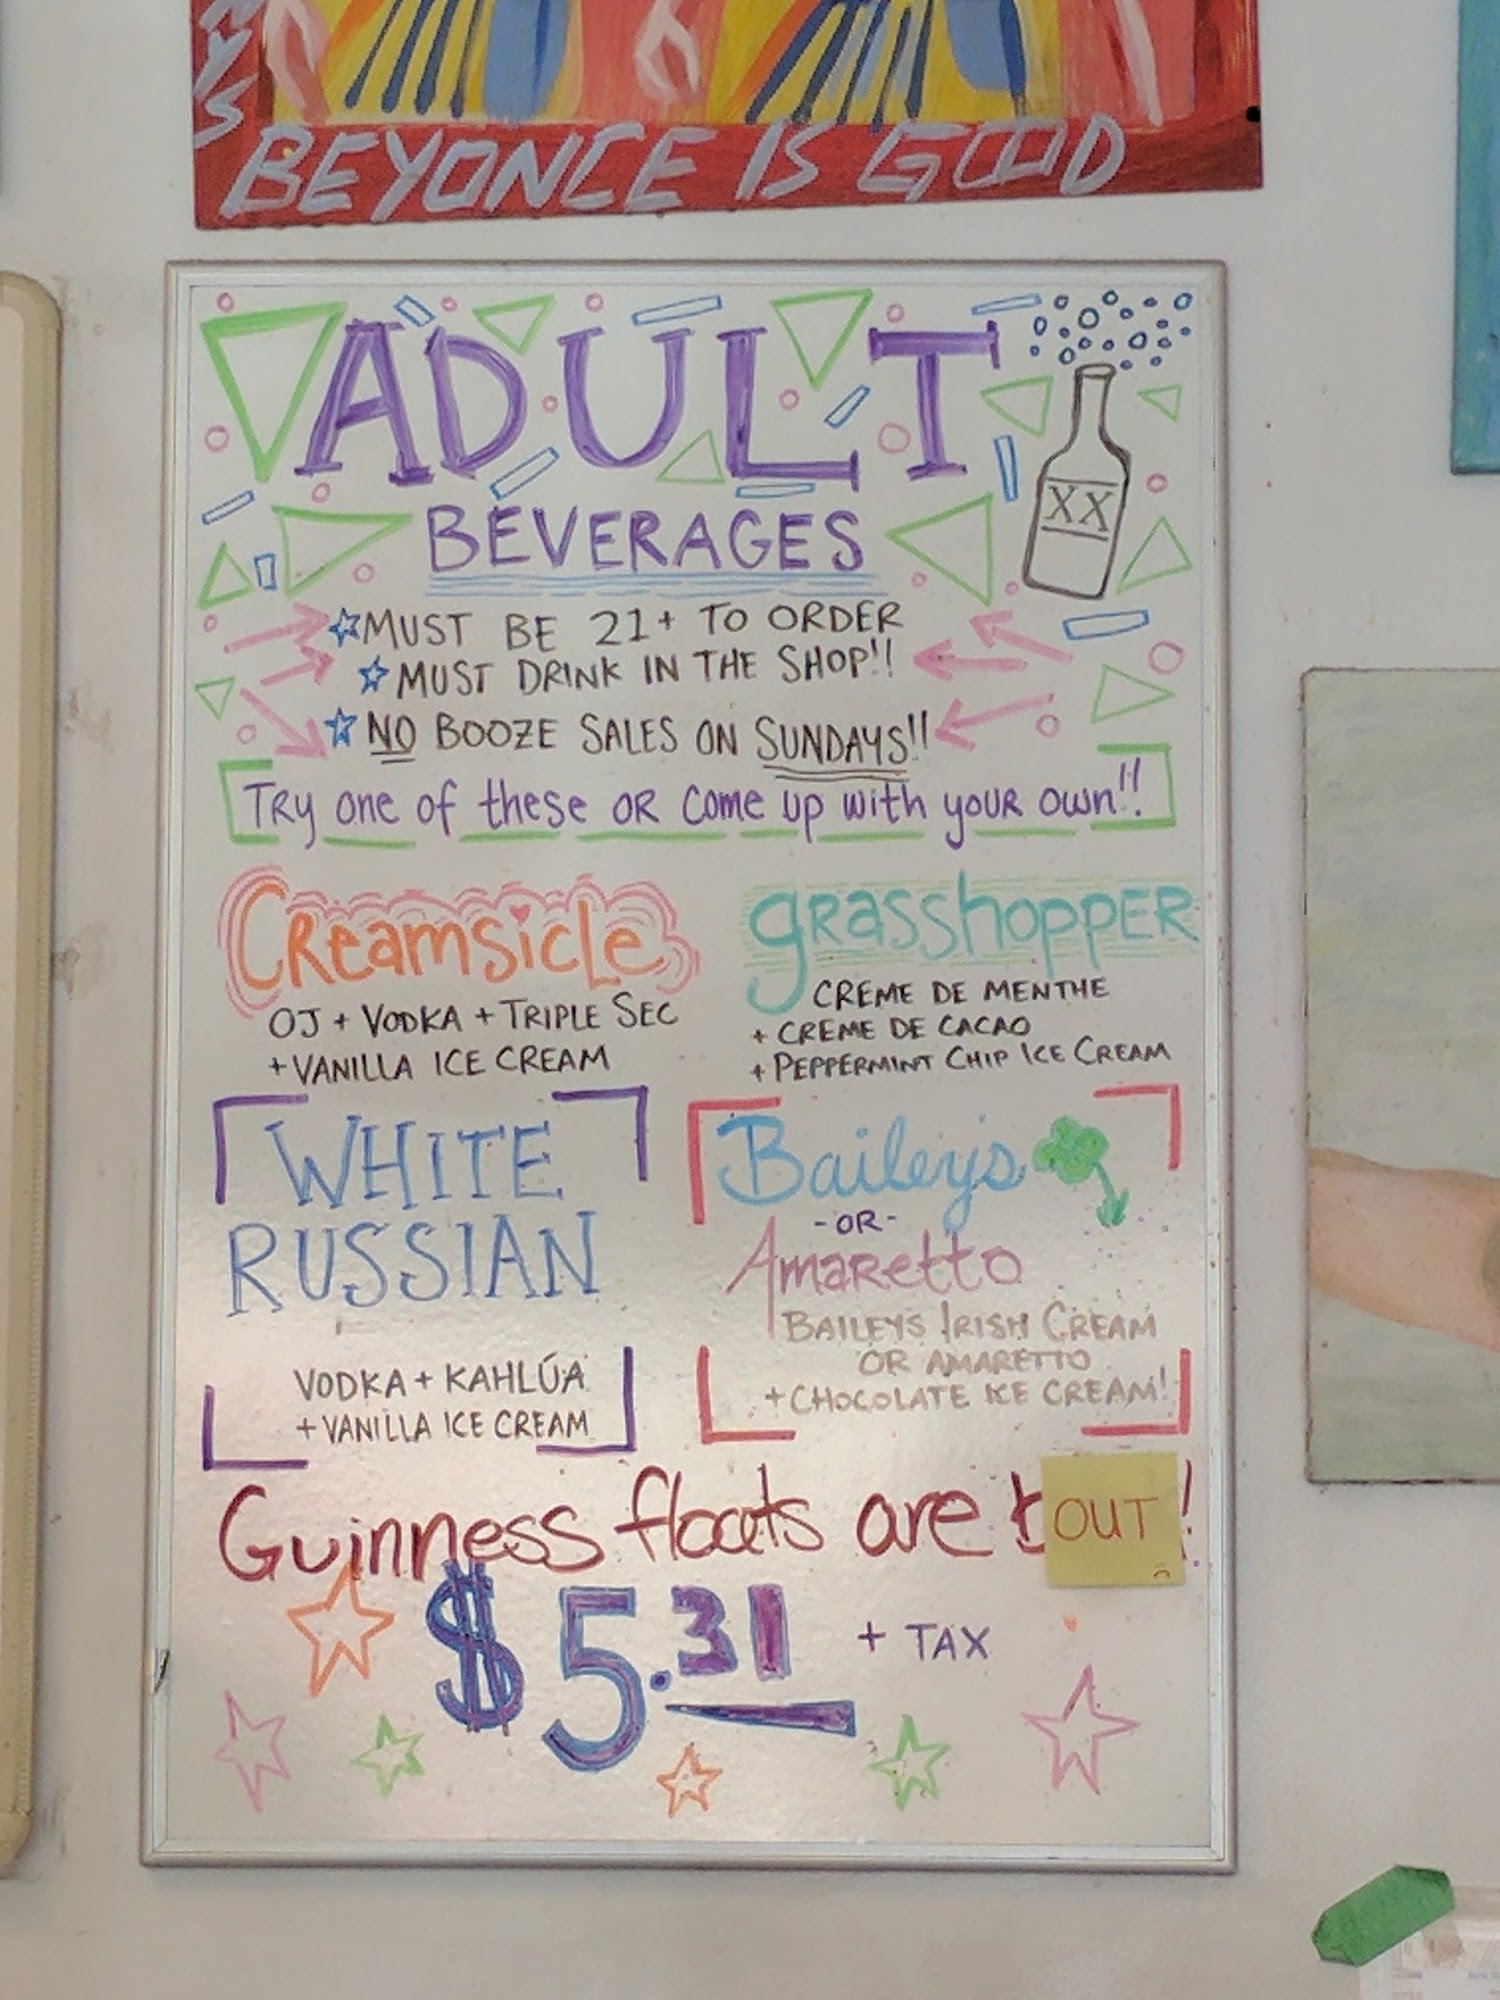 BEYONCE IS GOOD
ADULT
BEVERAGES
XX
MUST BE 21+ TO ORDER
MUST DRINK IN THE SHOP!!
NO BOOZE SALES ON SUNDAYS!!
TRy one of these OR Come up with yOUR own!!
CReamsicLe
OJ + VODKA + TRIPLE SEC
+ VANILLA ICE CREAM
gRasshoppER
CREME DE MENTHE
+ CREME DE CACAO
+ PEPPERMINT CHIP ICE CREAM
WHITE
RUSSIAN
VODKA + KAHLÚA
+ VANILLA ICE CREAM
Baileys
-OR-
AmaRetto
BAILEYS IRISH CREAM
OR AMARETTO
+ CHOCOLATE ICE CREAM!
Guinness floats are OUT!
$5.31 + TAX